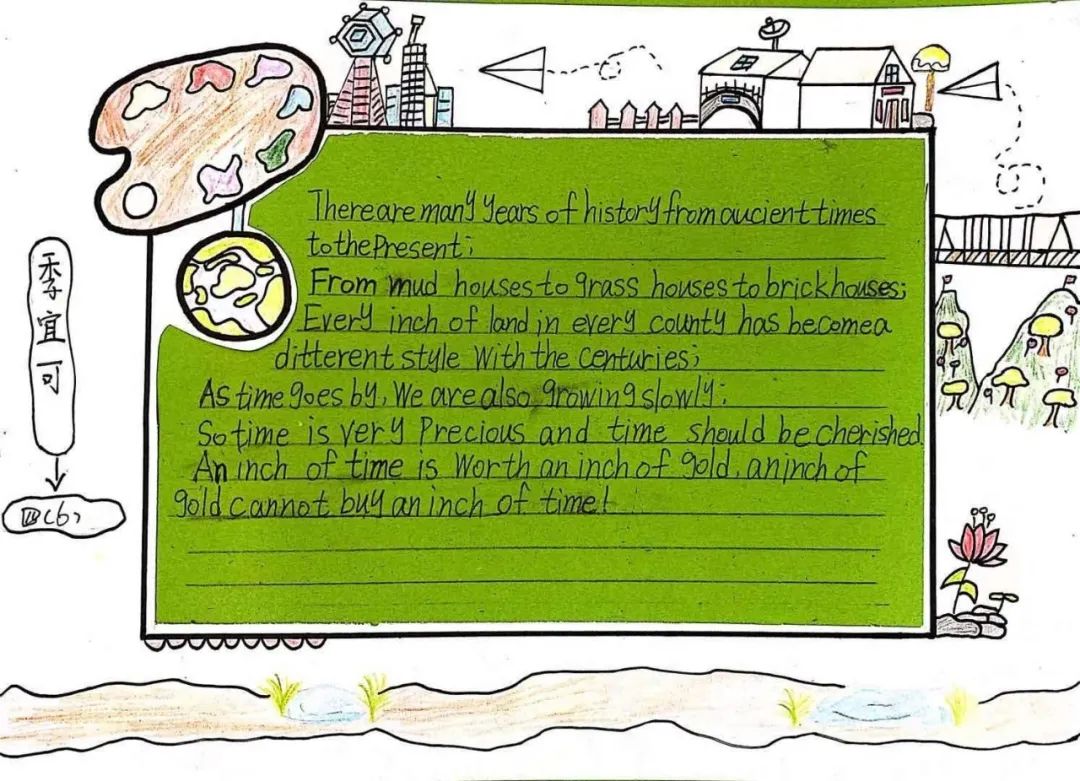 There are many years of history from aucient times
to the Present;
From mud houses to grass houses to brick houses;
Every inch of land in every county has become a
ditterent style With the centuries;
As time goes by, We are also growing slowly;
So time is very Precious and time should be cherished.
An inch of time is Worth an inch of gold, an inch of
gold cannot buy an inch of time!
季宜可
四(6)